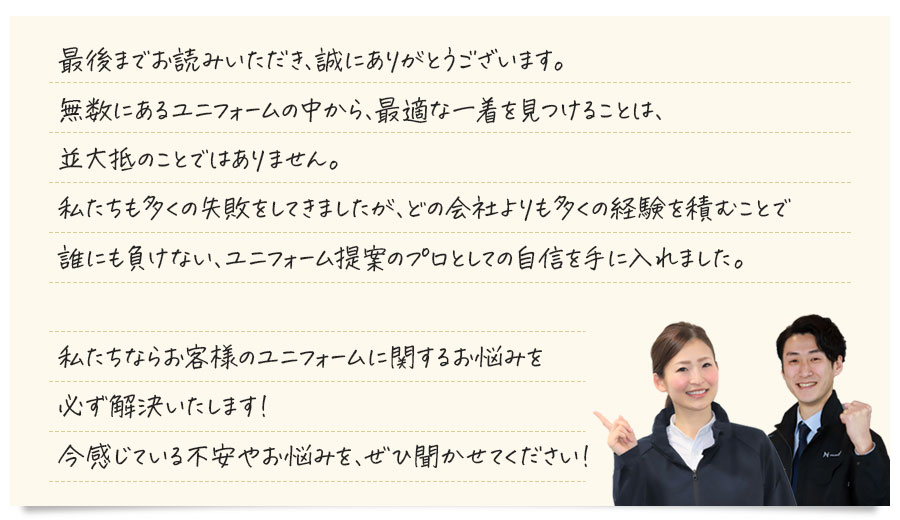 最後までお読みいただき、誠にありがとうございます。
無数にあるユニフォームの中から、最適な一着を見つけることは、
並大抵のことではありません。
私たちも多くの失敗をしてきましたが、どの会社よりも多くの経験を積むことで
誰にも負けない、ユニフォーム提案のプロとしての自信を手に入れました。
私たちならお客様のユニフォームに関するお悩みを
必ず解決いたします！
今感じている不安やお悩みを、ぜひ聞かせてください！